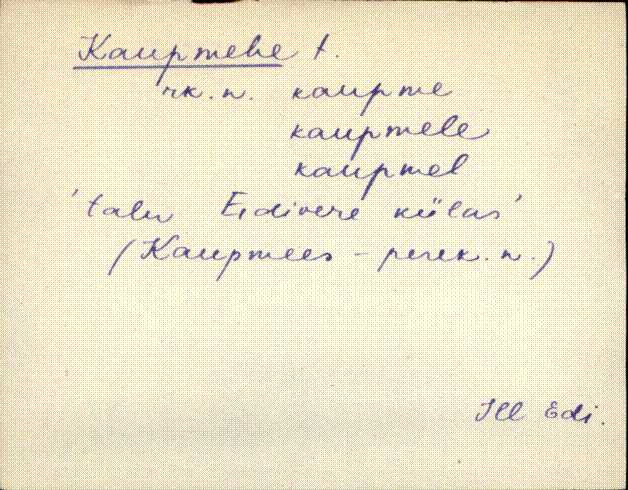 Kauptehe t.
rk. n. kaupme
kaupmele
kaupmel
'talu Eidivere külas'
(Kaupmees - perek. n.)
Ill Edi.